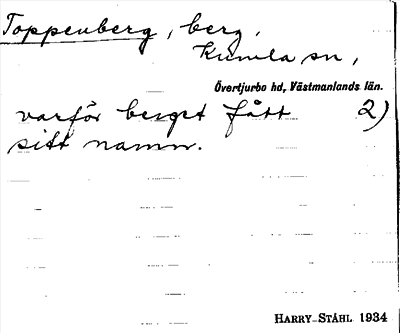 Toppenberg, berg,
Kumla sn,
Övertjurbo hd, Västmanlands län.
varför berget fått 2)
sitt namn.
HARRY STÅHL 1934